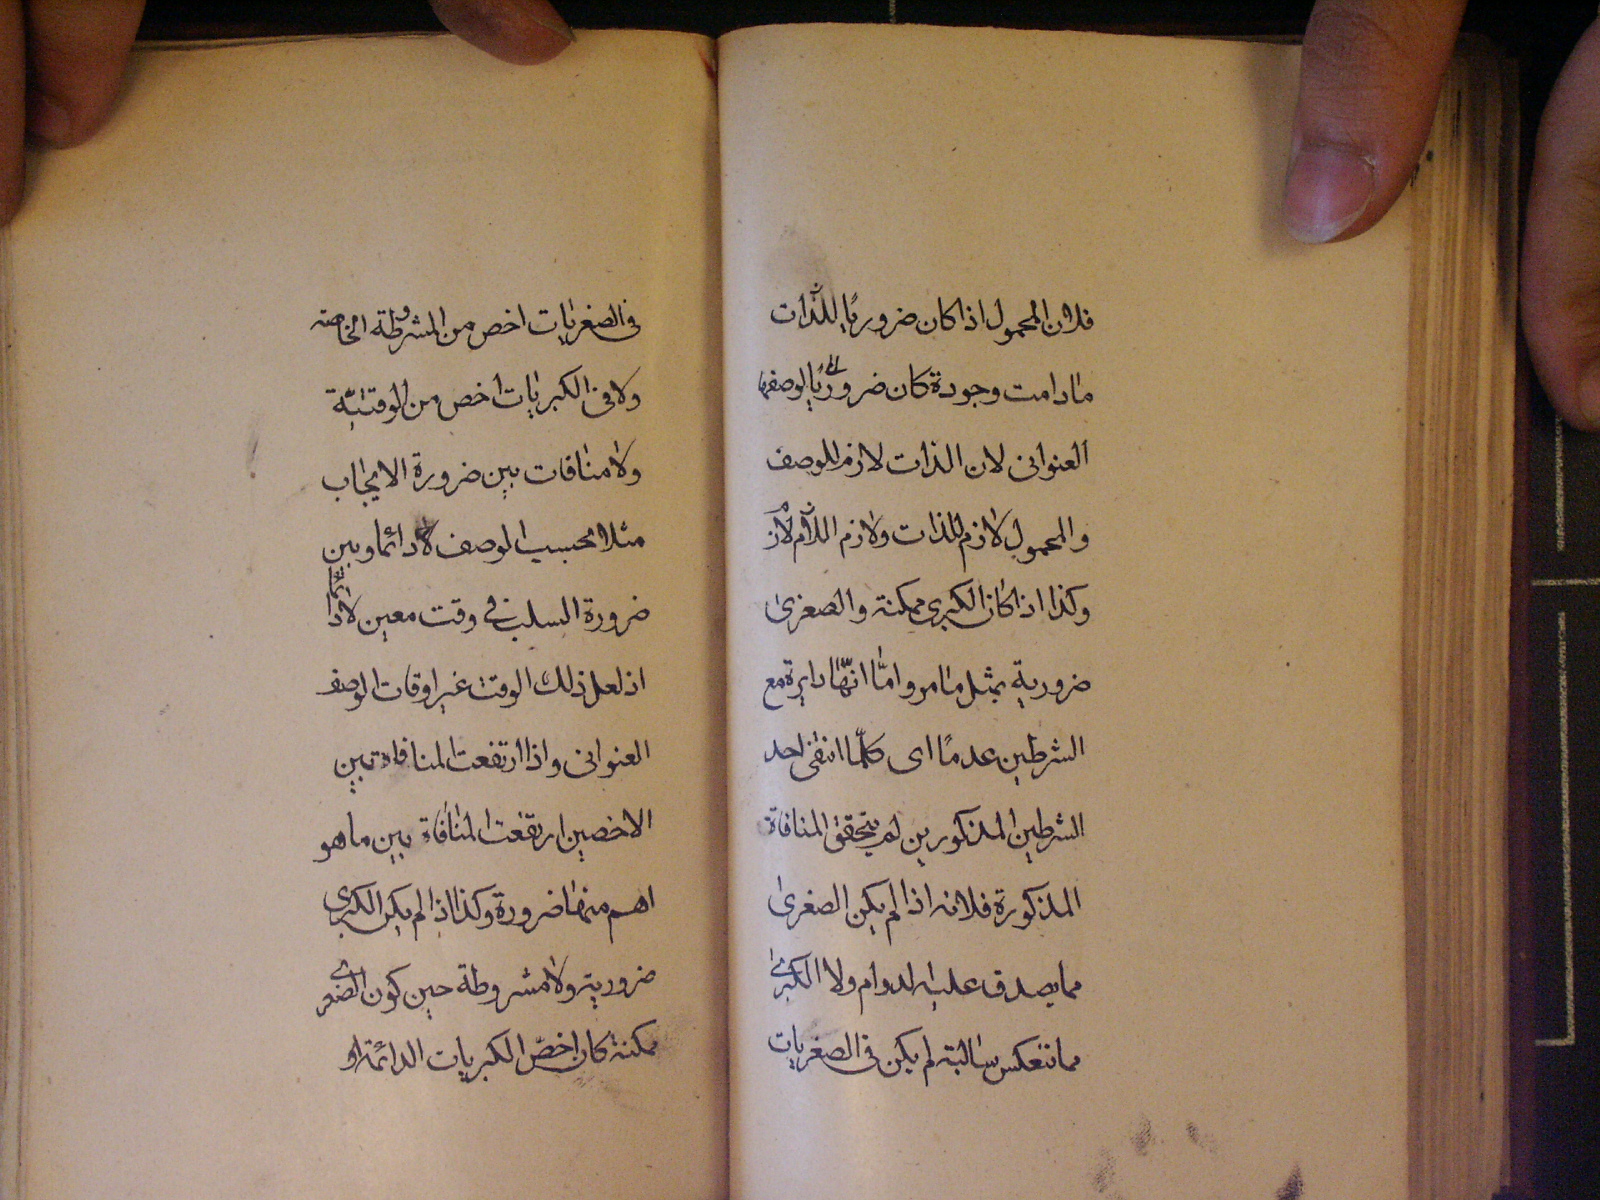 فلان المحمول اذا كان ضروريا للذات
مادامت وجودة كان ضروريا لوصفها
العنوانى لان الذات لازم للوصف
والمحمول لازم للذات ولازم اللازم لازم
وكذا اذا كان الكبرى ممكنة والصغرى
ضرورية بمثل ما مر واما انها دايرة مع
الشرطين عدما اى كلما انتفى احد
الشرطين المذكورين لم يتحقق المنافاة
المذكورة فلانه اذا لم يكن الصغرى
مما يصدق عليه الدوام ولا الكبرى
مما تنعكس سالبته لم يكن فى الصغريات
فى الصغريات اخص من المشروطة الخاصة
ولا فى الكبريات اخص من الوقتية
ولا منافات بين ضرورة الايجاب
مثلا بحسب الوصف لا دائما وبين
ضرورة السلب فى وقت معين لا دائما
اذ لعل ذلك الوقت غير اوقات الوصف
العنوانى واذا ارتفعت المنافاة بين
الاخصين ارتفعت المنافاة بين ما هو
اهم منهما ضرورة وكذا اذا لم يكن الكبرى
ضرورية ولا مشروطة حين كون الصغرى
ممكنة كان اخص الكبريات الدائمة او